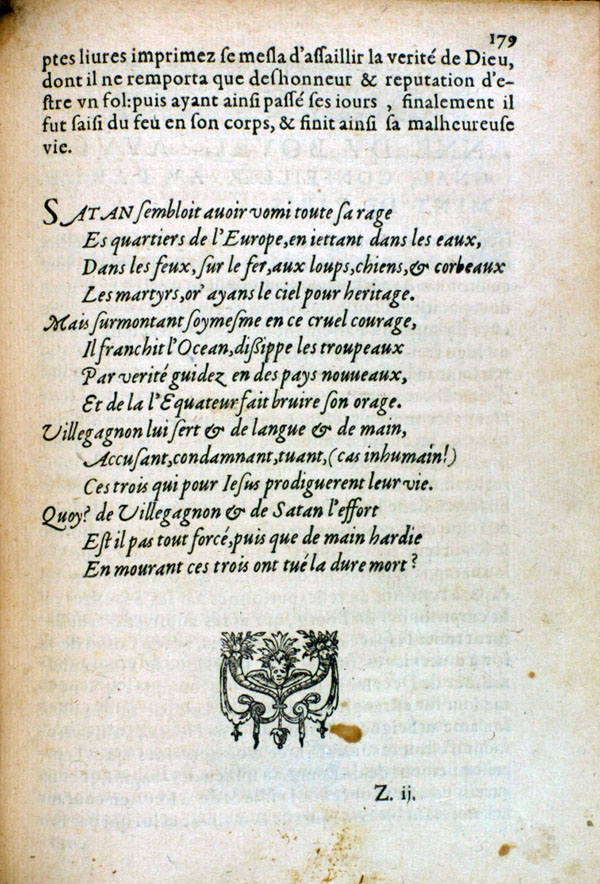 179
ptes liures imprimez se mesla d'assaillir la verité de Dieu,
dont il ne remporta que deshonneur & reputation d'e-
stre vn fol: puis ayant ainsi passé ses iours, finalement il
fut saisi du feu en son corps, & finit ainsi sa malheureuse
vie.
SATAN sembloit auoir vomi toute sa rage
Es quartiers de l'Europe, en iettant dans les eaux,
Dans les feux, sur le fer, aux loups, chiens, & corbeaux
Les martyrs, or' ayans le ciel pour heritage.
Mais surmontant soymesme en ce cruel courage,
Il franchit l'Ocean, dissippe les troupeaux
Par verité guidez en des pays nouueaux,
Et de la l'Equateur fait bruire son orage.
Villegagnon lui sert & de langue & de main,
Accusant, condamnant, tuant, (cas inhumain!)
Ces trois qui pour Iesus prodiguerent leur vie.
Quoy? de Villegagnon & de Satan l'effort
Est il pas tout forcé, puis que de main hardie
En mourant ces trois ont tué la dure mort?
Z. ij.